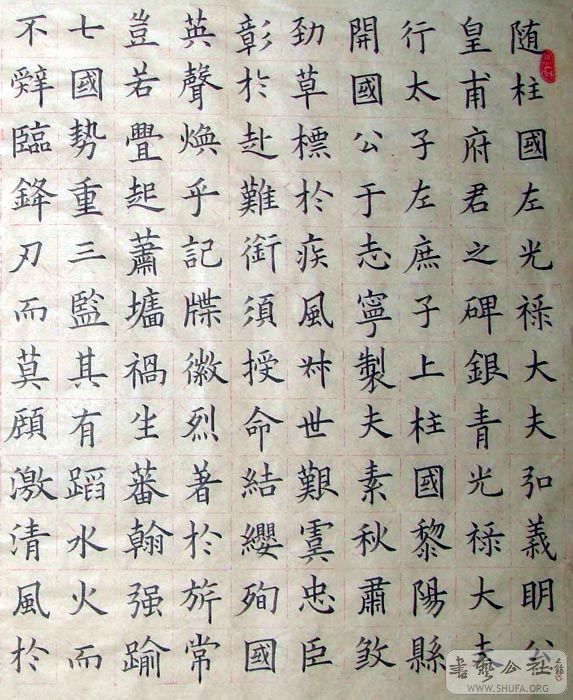 随柱國左光禄大夫弘義明公
皇甫府君之碑銀青光禄大夫
行太子左庶子上柱國黎陽縣
開國公于志寧製夫素秋肅煞
劲草標於疾風叔世艱虞忠臣
彰於赴難銜須授命結纓殉國
英聲焕乎記牒徽烈著於旂常
豈若舋起蕭墻禍生蕃翰强踰
七國勢重三監其有蹈水火而
不辭臨鋒刃而莫顧激清風於
書藝公社
WWW.SHUFA.ORG